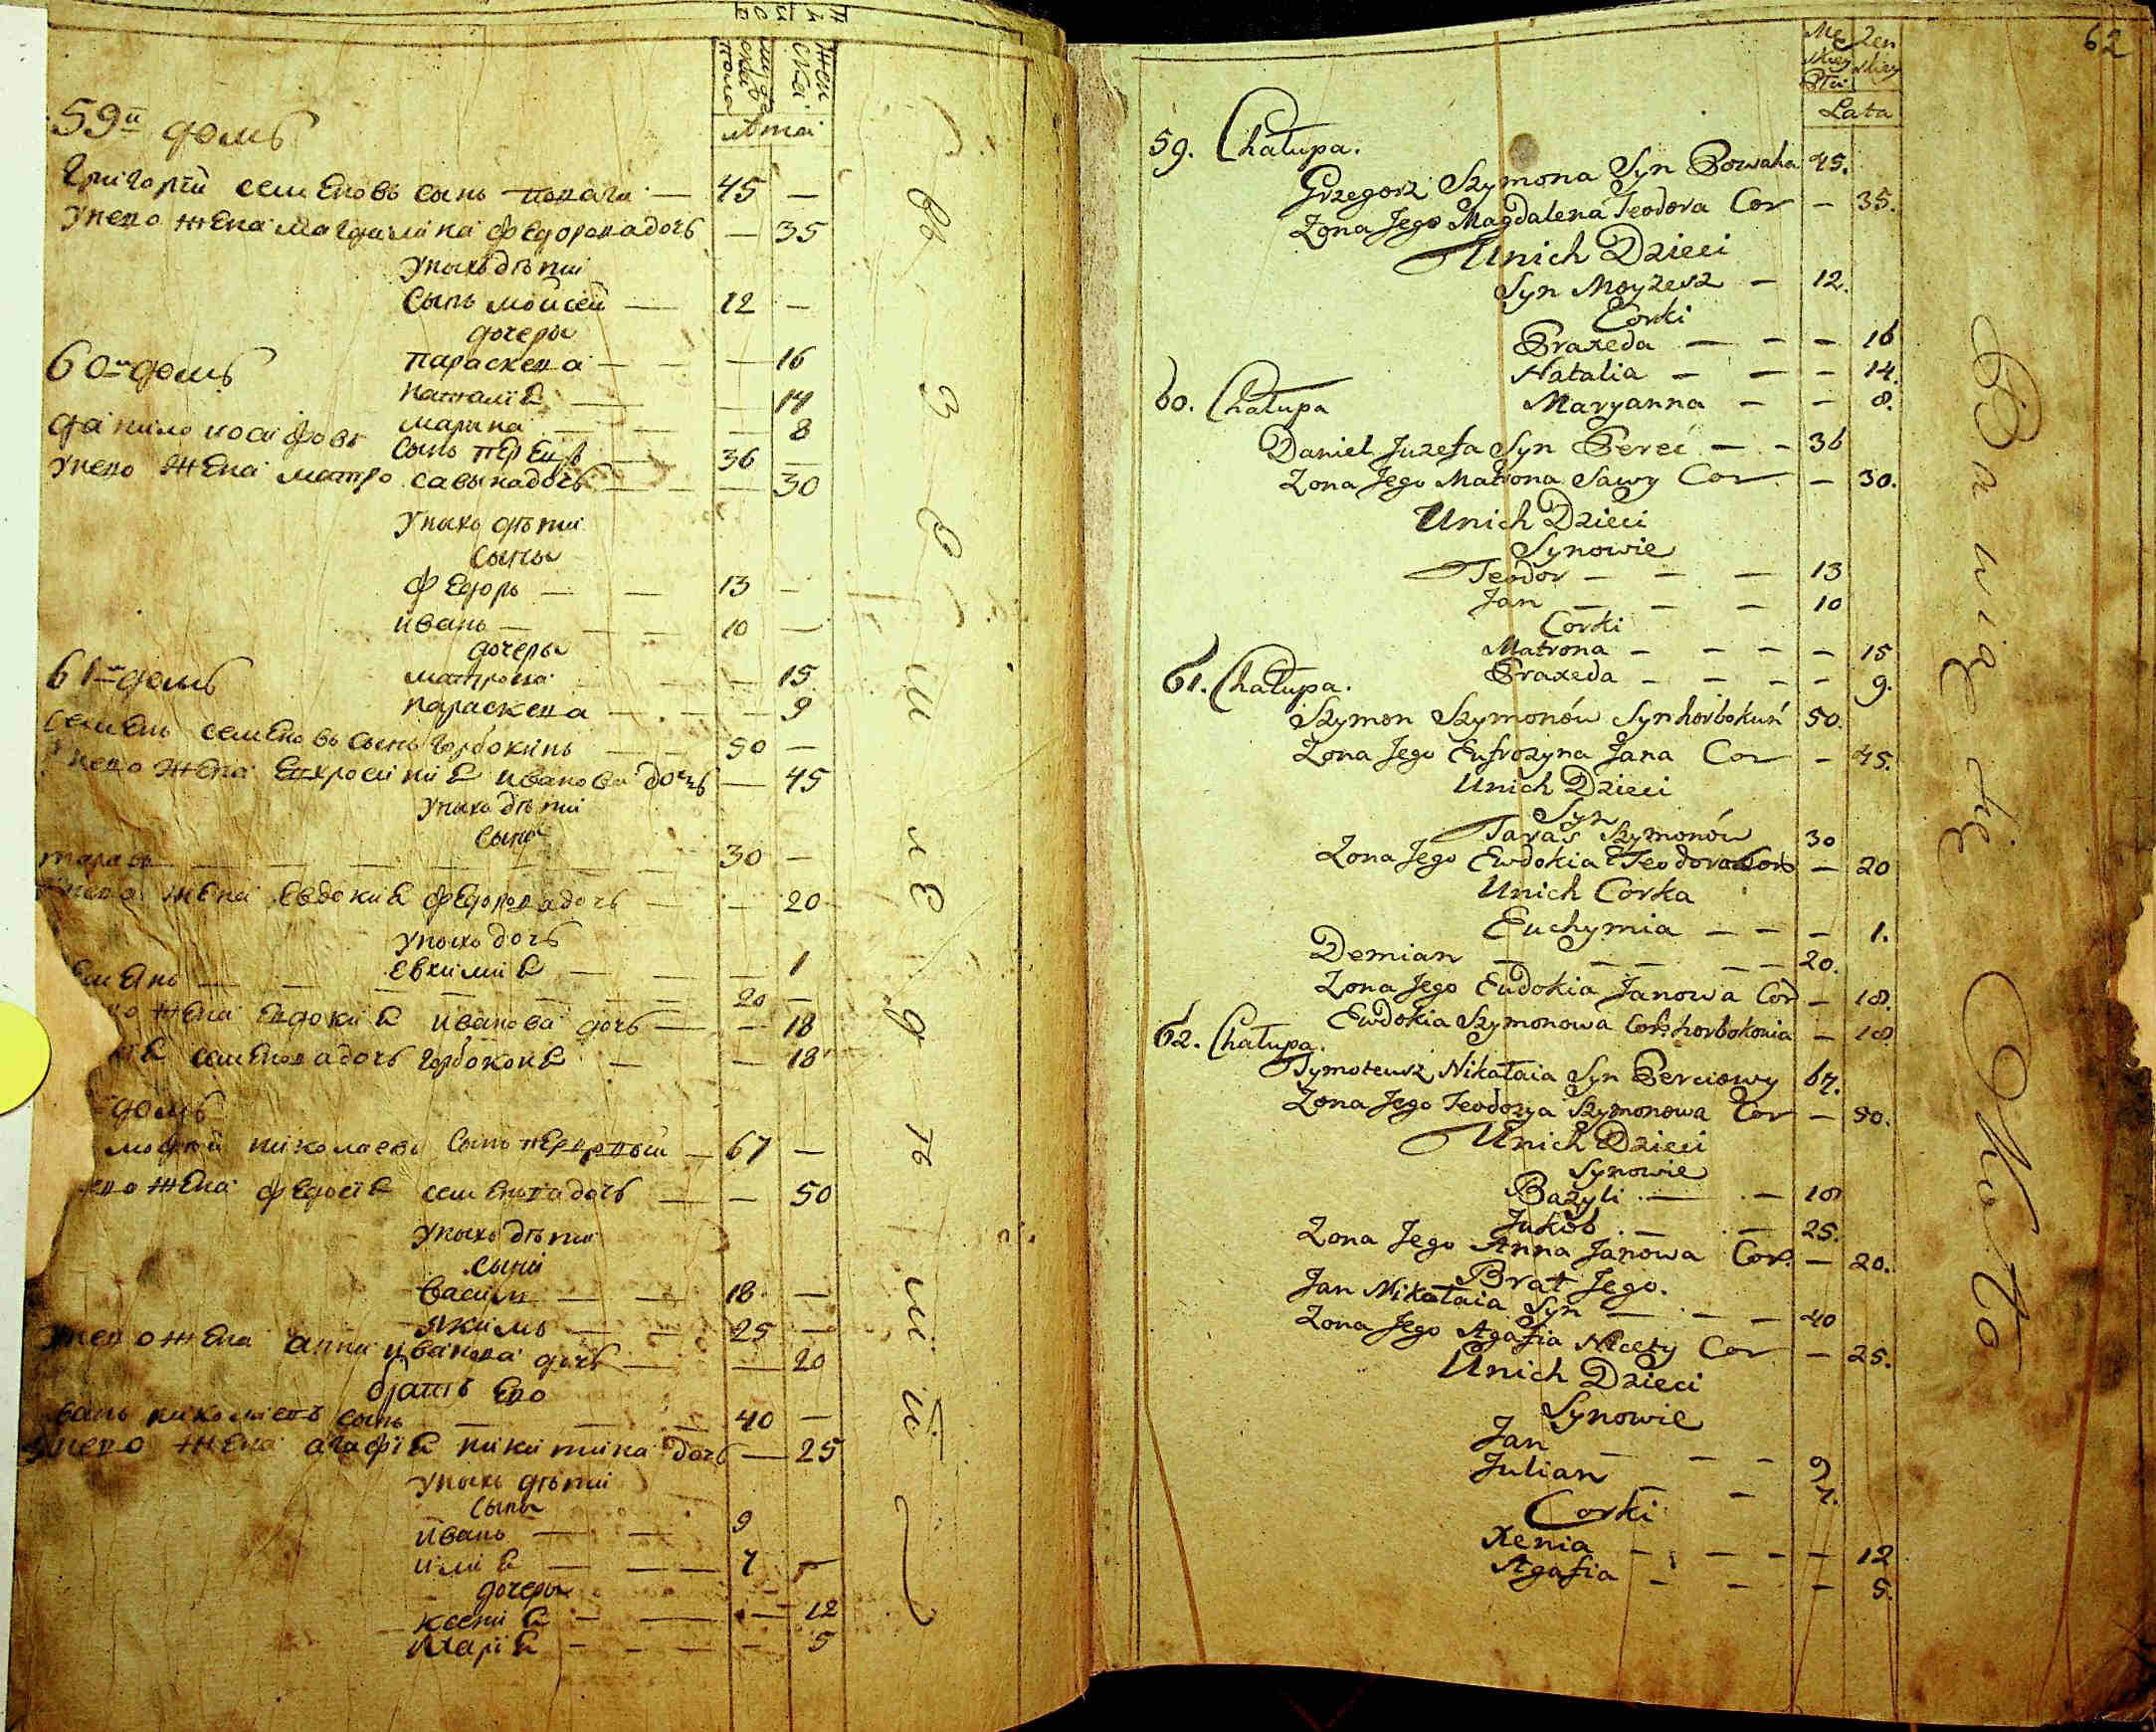 мужеска пола
женска
лѣта
59й домъ
Григорій семеновъ сынъ повага — 45 —
унево жена магдалина федорова дочь — 35
унихъ дѣти
Сынъ мойсей — 12 —
дочеры
параскева — — — 16
60й домъ
наталіа — — 14
марина — — — 8
данило иосифовъ сынъ перецъ — 36 —
унево жена матро савына дочь — — 30
унихъ дѣти
сыны
федоръ — — 13 —
иванъ — — — 10 —
дочеры
матрона — — 15
61й домъ
параскева — — — 9
семенъ семеновъ сынъ горбокинь — — 50 —
унево жена евхросиниа иванова дочь — 45
унихъ дѣти
сыны
тарасъ — — — — 30 —
унево жена евдокиа федорова дочь — — 20
унихъ дочь
евхимиа — — — 1
— — — 20 —
жена евдокиа иванова дочь — — 18
семенова дочь горбоконя — — 18
домъ
мофтей николаевъ сынъ перцовый — 67 —
жена федосіа семенова дочь — — 50
унихъ дѣти
сыны
васили — — 18 —
якимъ — — 25 —
унево жена анна иванова дочь — — 20
братъ ево
иванъ николаевъ сынъ — — — 40 —
унево жена агафіа никитина дочь — 25
унихъ дѣти
сыны
иванъ — — 9
илиа — — — 7 —
дочеры
ксениа — — — 12
марiа — — — — 5
въ
Męskiey Płci
Żenskiey
Lata
62
59. Chałupa.
Grzegorz Szymona Syn Powaha 45.
Zona Jego Magdalena Teodora Cor — 35.
Unich Dzieci
Syn Moyzesz — 12.
Corki
Praxeda — — — 16
Natalia — — — 14.
60. Chałupa
Maryanna — — 8.
Daniel Juzefa Syn Pereć — — 36
Zona Jego Matrona Sawy Cor — 30.
Unich Dzieci
Synowie
Teodor — — — 13
Jan — — — 10
Corki
Matrona — — — — 15
61. Chałupa.
Praxeda — — — — 9.
Szymon Szymonów Syn horbokuń 50.
Zona Jego Eufrozyna Jana Cor — 45.
Unich Dzieci
Syn
Taras Szymonów 30
Zona Jego Ewdokia Teodora Cor — 20
Unich Corka
Euchymia — — — 1.
Demian — — — — — 20.
Zona Jego Eudokia Janowa Cor — 18.
Ewdokia Szymonowa Cor: horbokonia — 18
62. Chałupa.
Tymoteusz Nikałaia Syn Perciowy 67.
Zona Jego Teodozya Szymonowa Cor — 50.
Unich Dzieci
Synowie
Bazyli — — 18
Jakób — — 25.
Zona Jego Anna Janowa Cor. — 20.
Brat Jego.
Jan Mikołaia Syn — — — 40
Zona Jego Agafia Nicety Cor — 25.
Unich Dzieci
Synowie
Jan — — — 9
Julian — — 7.
Corki
Xenia — — — — 12
Agafia — — — 5.